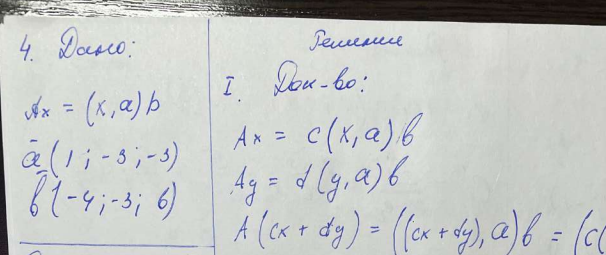 4. Дано:
Ax = (x,a)b
ā(1;-3;-3)
b̄(-4;-3; 6)
Решение
I. Док-во:
Ax = c(x,a)b
Ay = d(y,a)b
A(cx+dy) = ((cx+dy),a)b = (c(